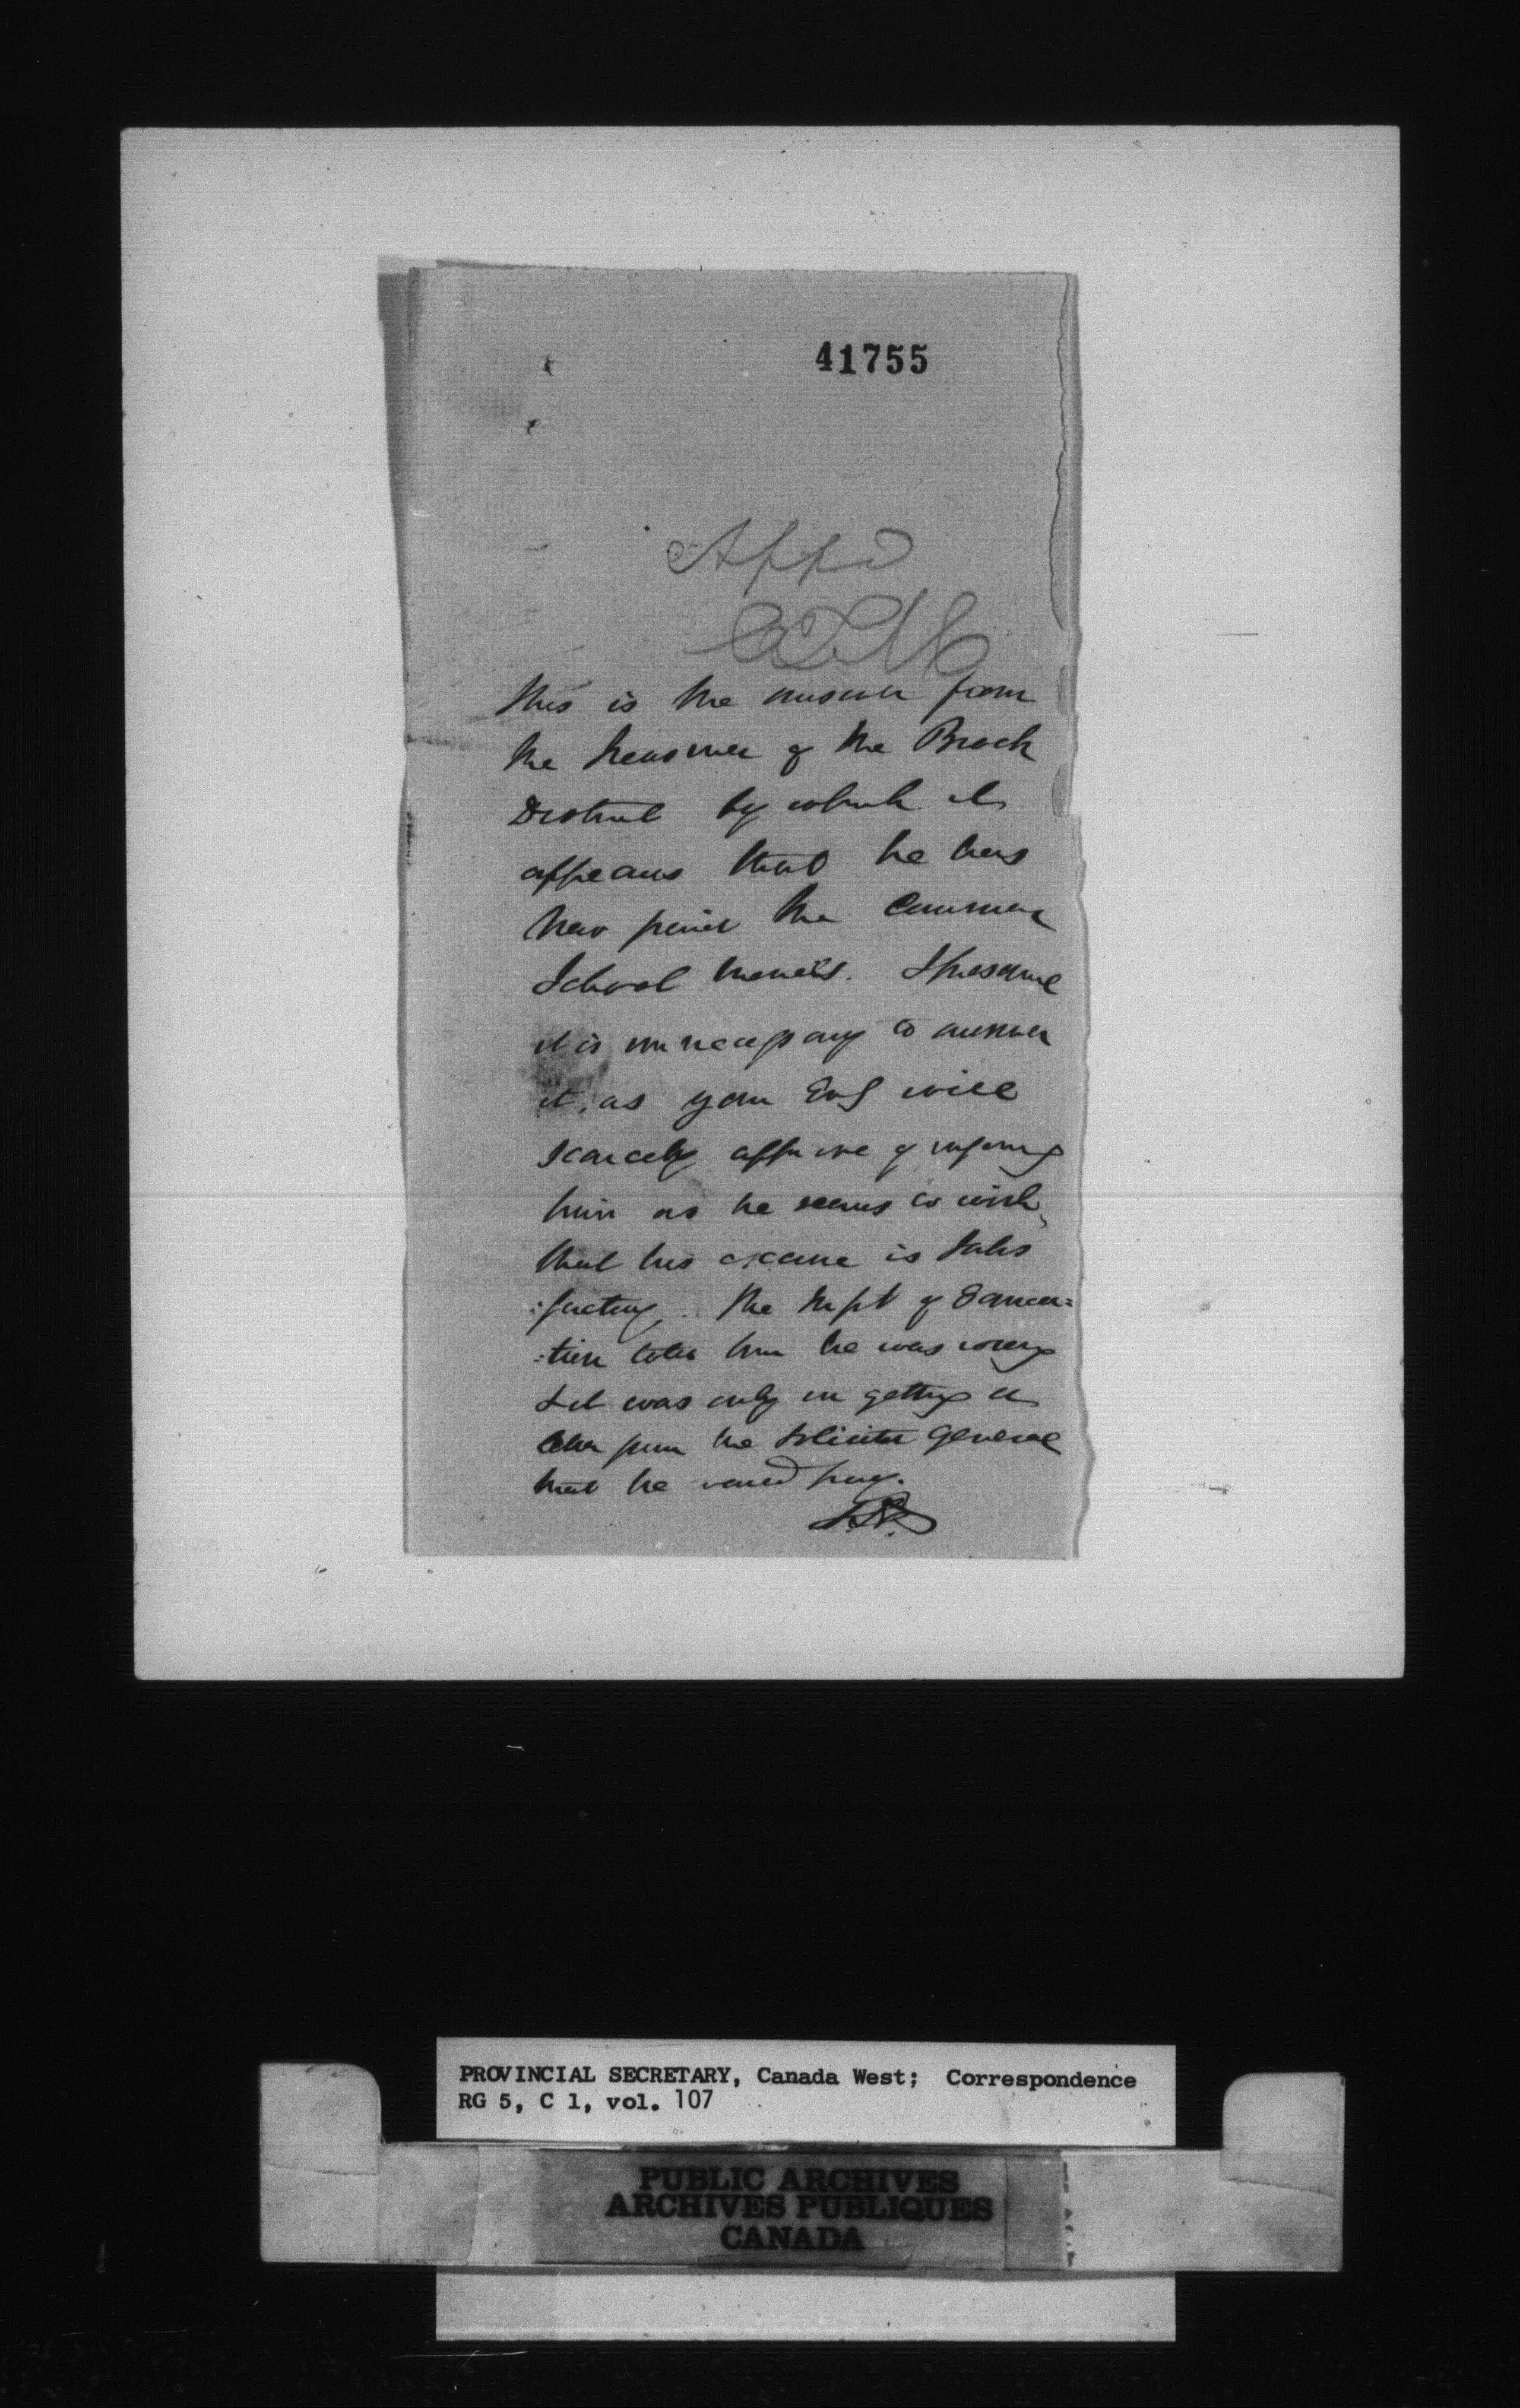 41755
Appd
CTM
This is the answer from
the Treasurer of the Brock
District by which it
appears that he has
now paid the Common
School monies. I presume
it is unnecessary to answer
it, as your Exy will
scarcely approve of informg
him as he seems to wish,
that his excuse is satis
:factory. The Supt of Educa=
:tion told him he was wrong
& it was only on getting a
letter from the Solicitor General
that he would pay.
PROVINCIAL SECRETARY, Canada West; Correspondence
RG 5, C 1, vol. 107
PUBLIC ARCHIVES
ARCHIVES PUBLIQUES
CANADA